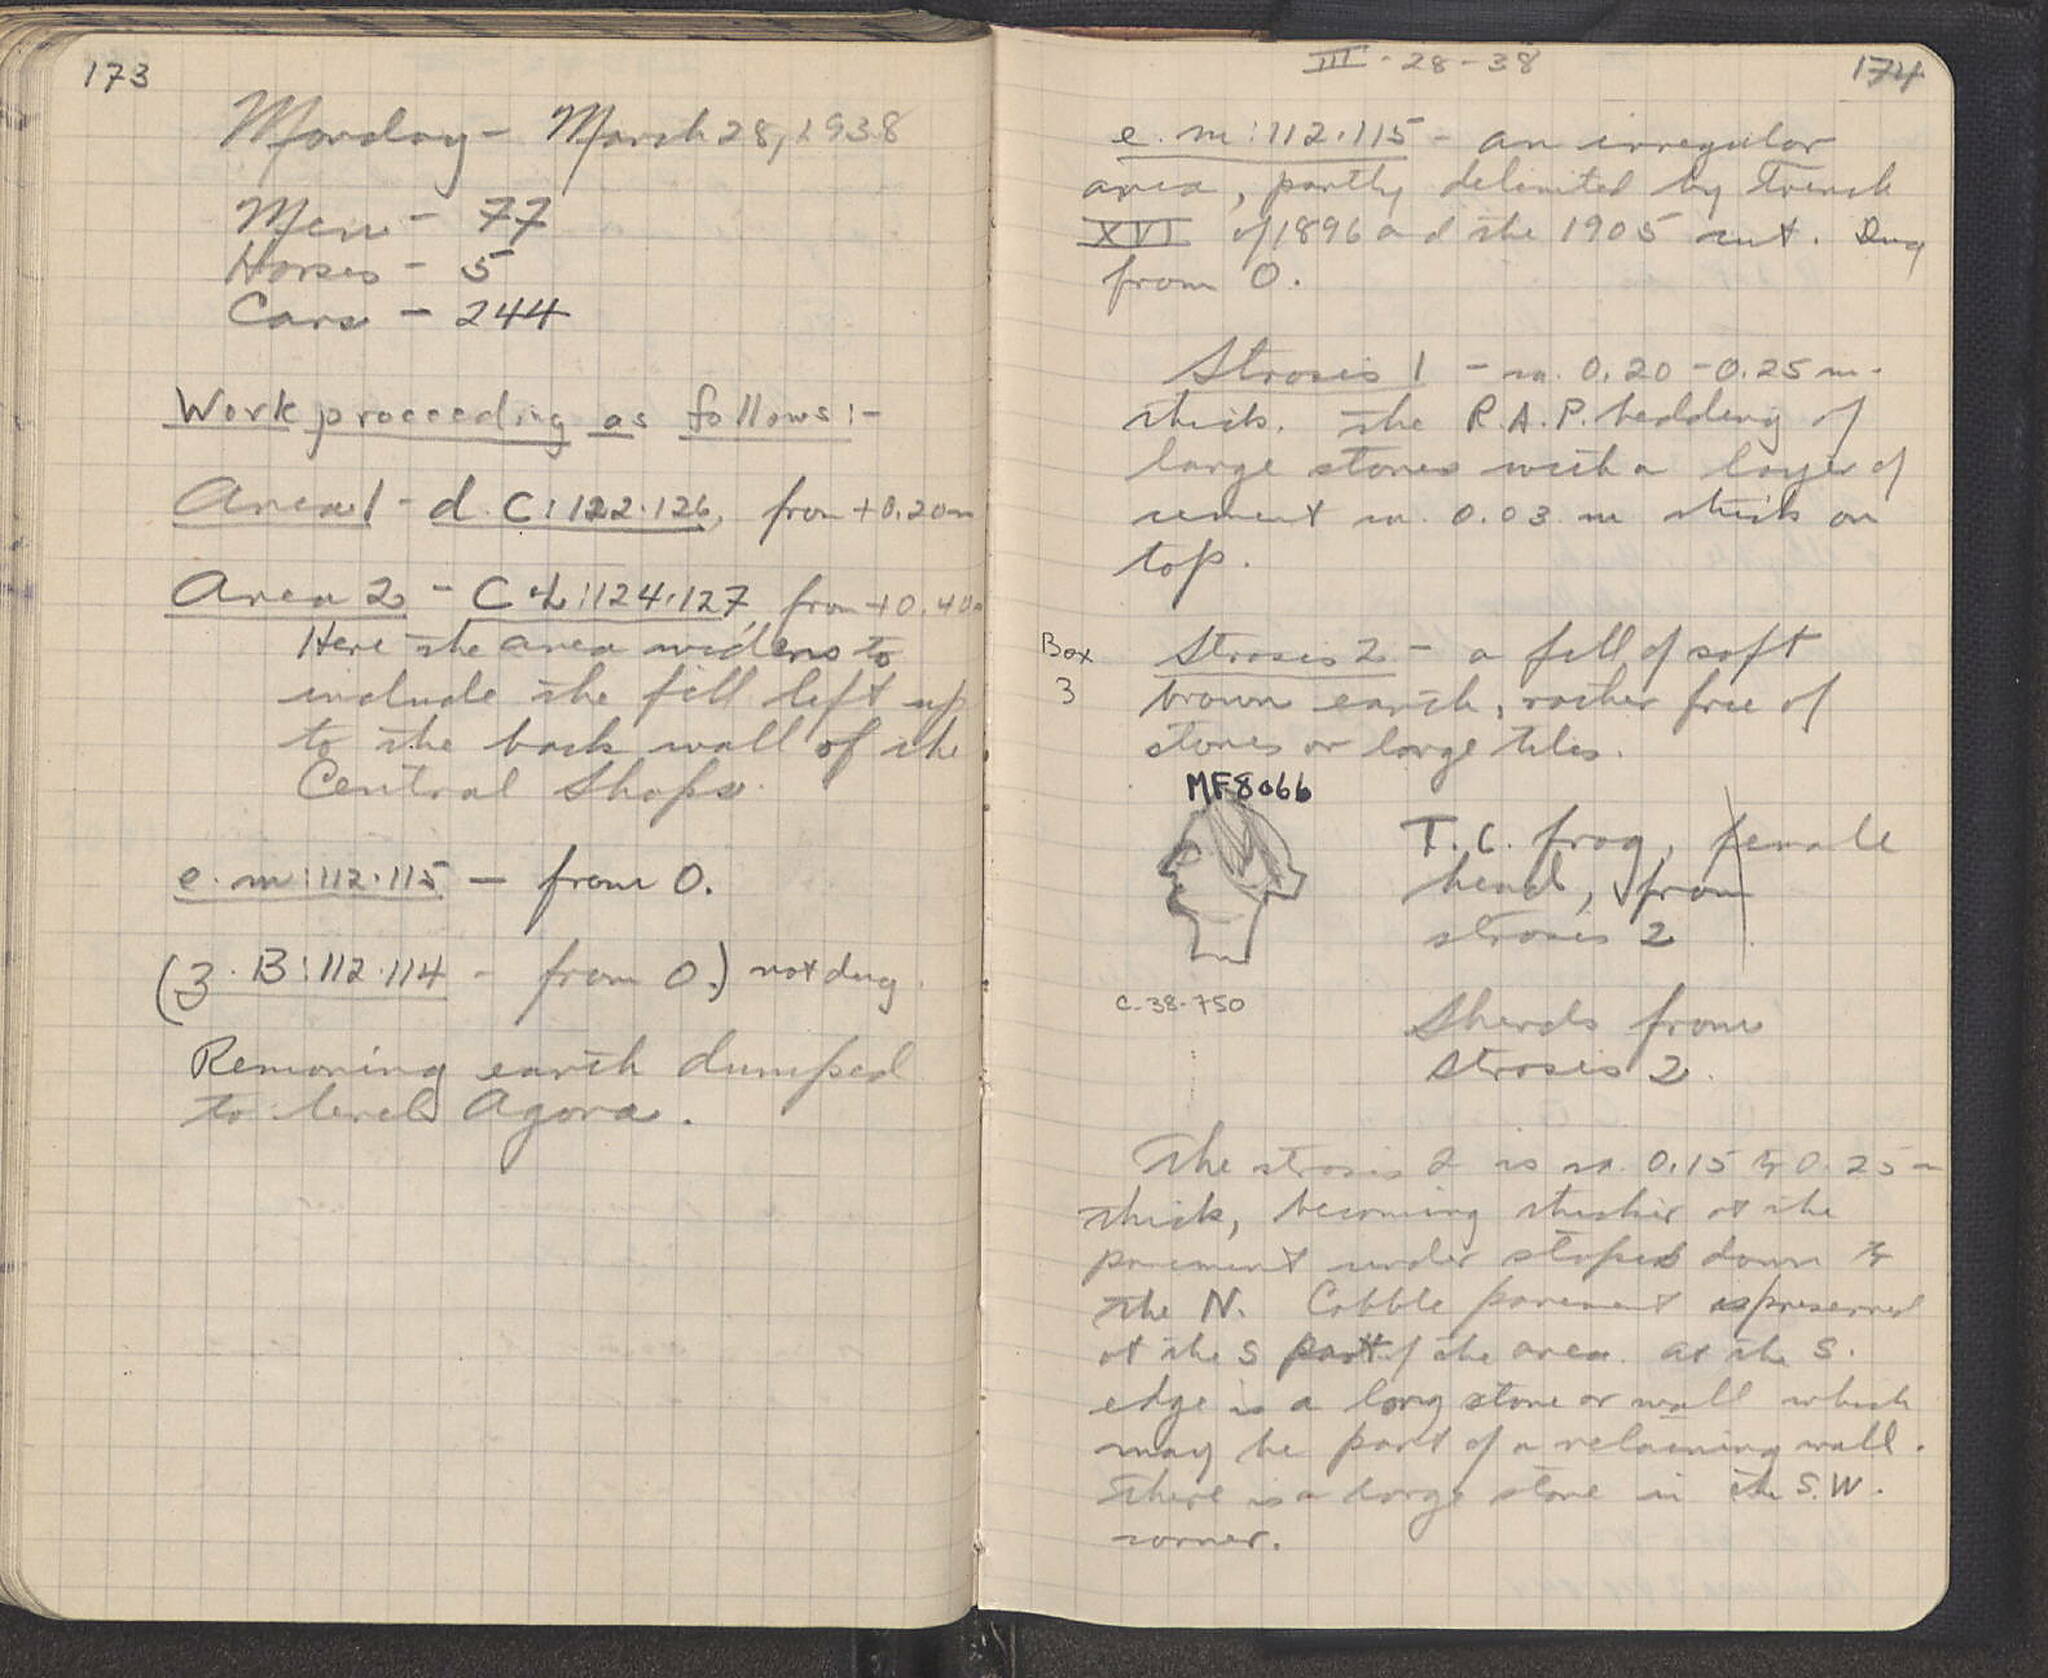 173
Monday - March 28, 1938
Men - 77
Horses - 5
Cars - 244
Work proceeding as follows:-
Area 1 - d. C:122.126, from +0.20m
Area 2 - C :124.127, from +0.40
Here the area widens to
include the fill left up
to the back wall of the
Central Shops.
e. m:112.115 - from 0.
(3. B:112.114 - from 0.) not dug.
Removing earth dumped
to level Agora.
III - 28 - 38
174
e. m:112.115 - an irregular
area, partly delimited by Trench
XVI of 1896 and the 1905 cut. Dug
from 0.
Strosis 1 - ca. 0.20-0.25 m.
thick. The R.A.P. bedding of
large stones with a layer of
cement ca. 0.03 m thick on
top.
Box
3
Strosis 2 - a fill of soft
brown earth, rather free of
stones or large tiles.
MF8066
T.C. frag, female
head, from
strosis 2
C-38-750
Sherds from
strosis 2.
The strosis 2 is ca. 0.15 to 0.25 m
thick, becoming thicker as the
pavement under slopes down to
the N. Cobble pavement is preserved
at the S part of the area. At the S.
edge is a long stone or wall which
may be part of a retaining wall.
There is a large stone in the S.W.
corner.